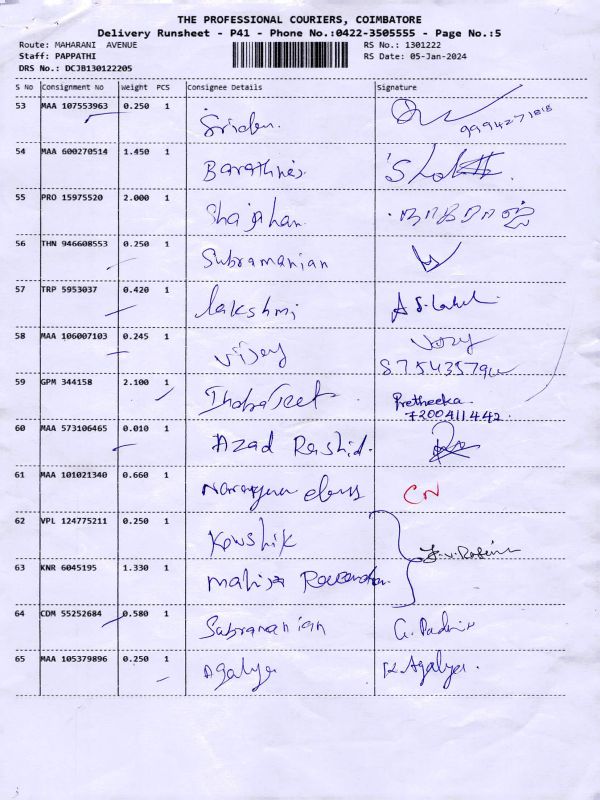 THE PROFESSIONAL COURIERS, COIMBATORE
Delivery Runsheet - P41 - Phone No.:0422-3505555 - Page No.:5
Route: MAHARANI AVENUE RS No.: 1301222
Staff: PAPPATHI RS Date: 05-Jan-2024
DRS No.: DCJB130122205
S No Consignment No Weight PCS Consignee Details Signature
53 MAA 107553963 0.250 1
9994271818
54 MAA 600270514 1.450 1 Barathnes
55 PRO 15975520 2.000 1 Shajahan
56 THN 946608553 0.250 1 Subramanian
57 TRP 5953037 0.420 1 lakshmi
58 MAA 106007103 0.245 1 vijey
59 GPM 344158 2.100 1 Pretheeka
7200411442
60 MAA 573106465 0.010 1 Azad Rashid.
61 MAA 101021340 0.660 1 CN
62 VPL 124775211 0.250 1 Kowshik
63 KNR 6045195 1.330 1
64 CDM 55252684 0.580 1 Subramanian
65 MAA 105379896 0.250 1 Agalya K.Agalya.